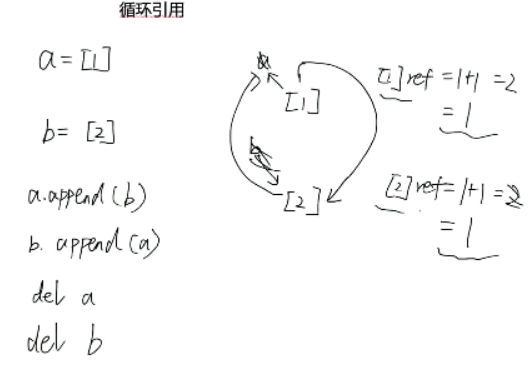 循环引用
a = [1]
b = [2]
a.append(b)
b. append(a)
del a
del b
a
[1]
b
[2]
[1] ref = 1+1 = 2
= 1
[2] ref = 1+1 = 2
= 1